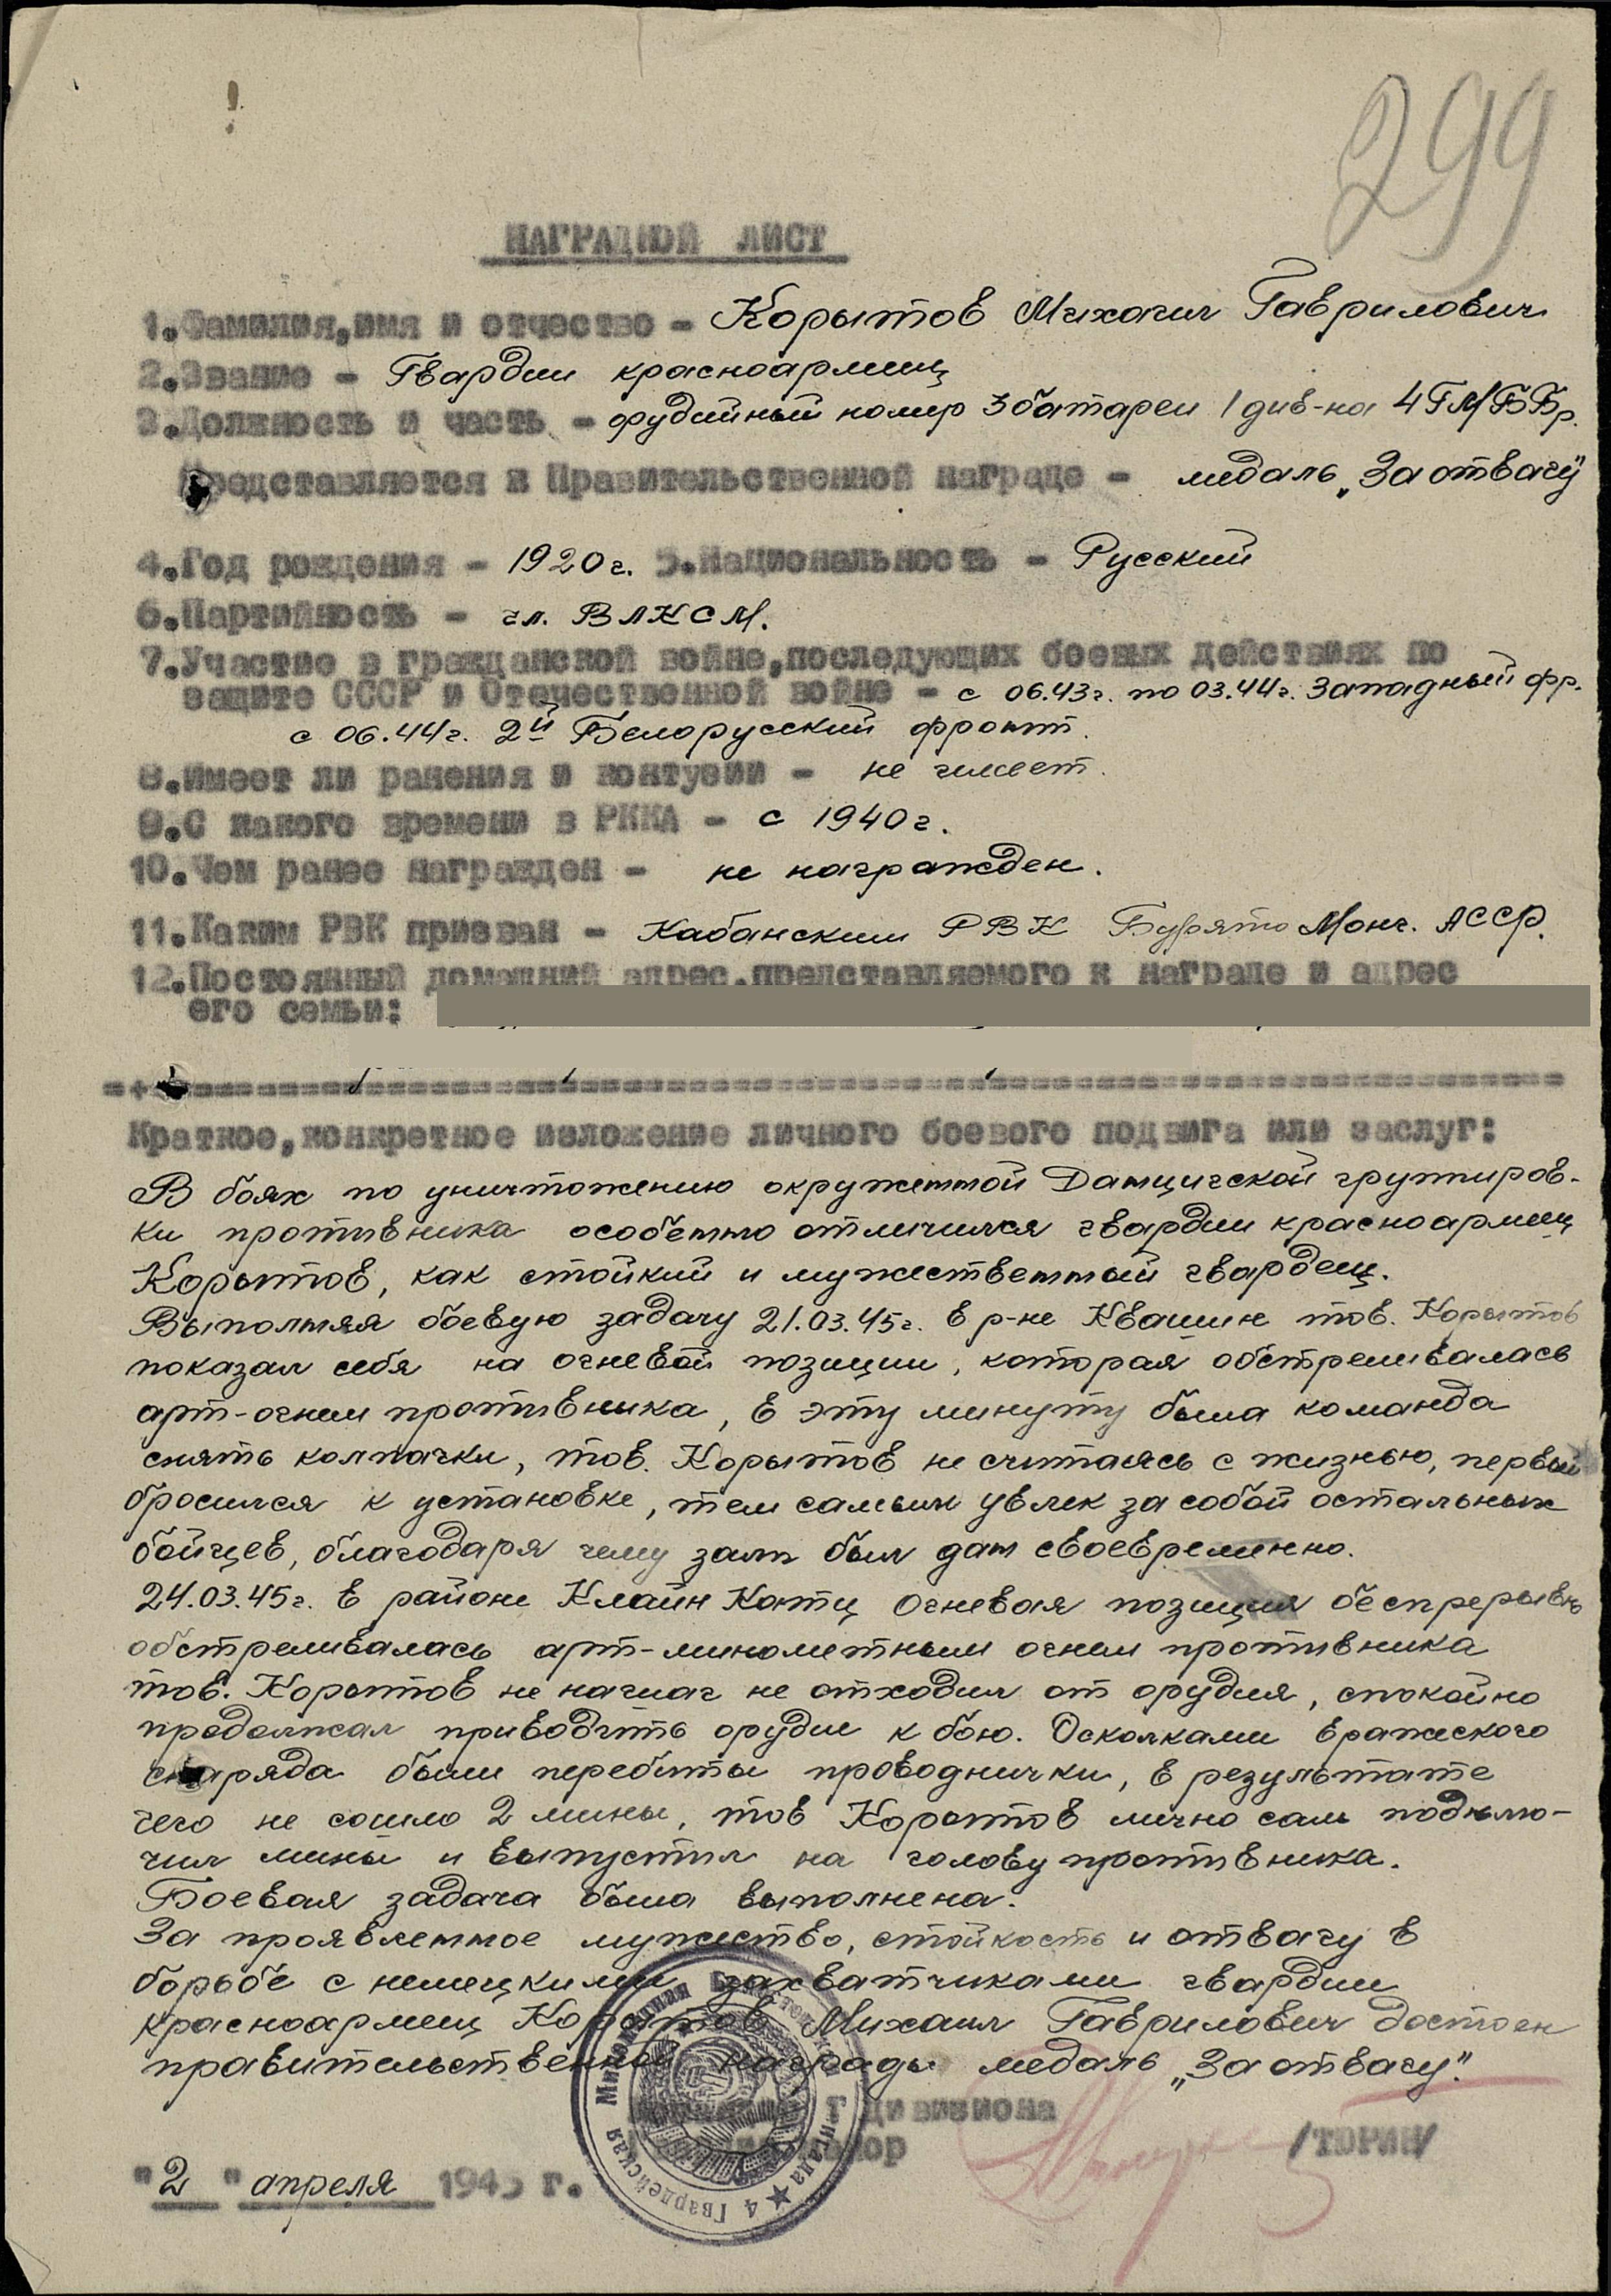 299
НАГРАДНОЙ ЛИСТ
1.Фамилия,имя и отчество – Корытов Михаил Гаврилович
2.Звание – Гвардии красноармеец
3.Должность и часть – орудийный номер 3 батареи 1 див-на 4 ГМББр.
Представляется к Правительственной награде – медаль „За отвагу"
4.Год рождения – 1920 г. 5.Национальность – Русский
6.Партийность – чл. ВЛКСМ.
7.Участие в гражданской войне,последующих боевых действиях по
защите СССР и Отечественной войне – с 06.43г. по 03.44г. Западный фр.
с 06.44г. 2й Белорусский фронт.
8.Имеет ли ранения и контузии – не имеет.
9.С какого времени в РККА – с 1940 г.
10.Чем ранее награжден – не награжден.
11.Каким РВК призван – Кабанским РВК Бурято Монг. АССР.
12.Постоянный домашний адрес,представляемого к награде и адрес
его семьи:
Краткое,конкретное изложение личного боевого подвига или заслуг:
В боях по уничтожению окруженной Данцигской группиров-
ки противника особенно отличился гвардии красноармеец
Корытов, как стойкий и мужественный гвардеец.
Выполняя боевую задачу 21.03.45г. в р-не Квашин тов. Корытов
показал себя на огневой позиции, которая обстреливалась
арт-огнем противника, в эту минуту была команда
снять колпачки, тов. Корытов не считаясь с жизнью, первый
бросился к установке, тем самым увлек за собой остальных
бойцев, благодаря чему залп был дан своевременно.
24.03.45г. в районе Клайн Катц огневая позиция беспрерывно
обстреливалась арт-минометным огнем противника
тов. Корытов не на шаг не отходил от орудия, спокойно
продолжал приводить орудие к бою. Осколками вражеского
снаряда были перебиты проводнички, в результате
чего не сошло 2 мины, тов Корытов лично сам подклю-
чил мины и выпустил на голову противника.
Боевая задача была выполнена.
За проявленное мужество, стойкость и отвагу в
борьбе с немецкими захватчиками гвардии
красноармеец Корытов Михаил Гаврилович достоен
правительственной награды медаль „За отвагу".
дивизиона
/ТЮРИН/
"2" апреля 1945 г.
4 Гвардейская Минометная бригада